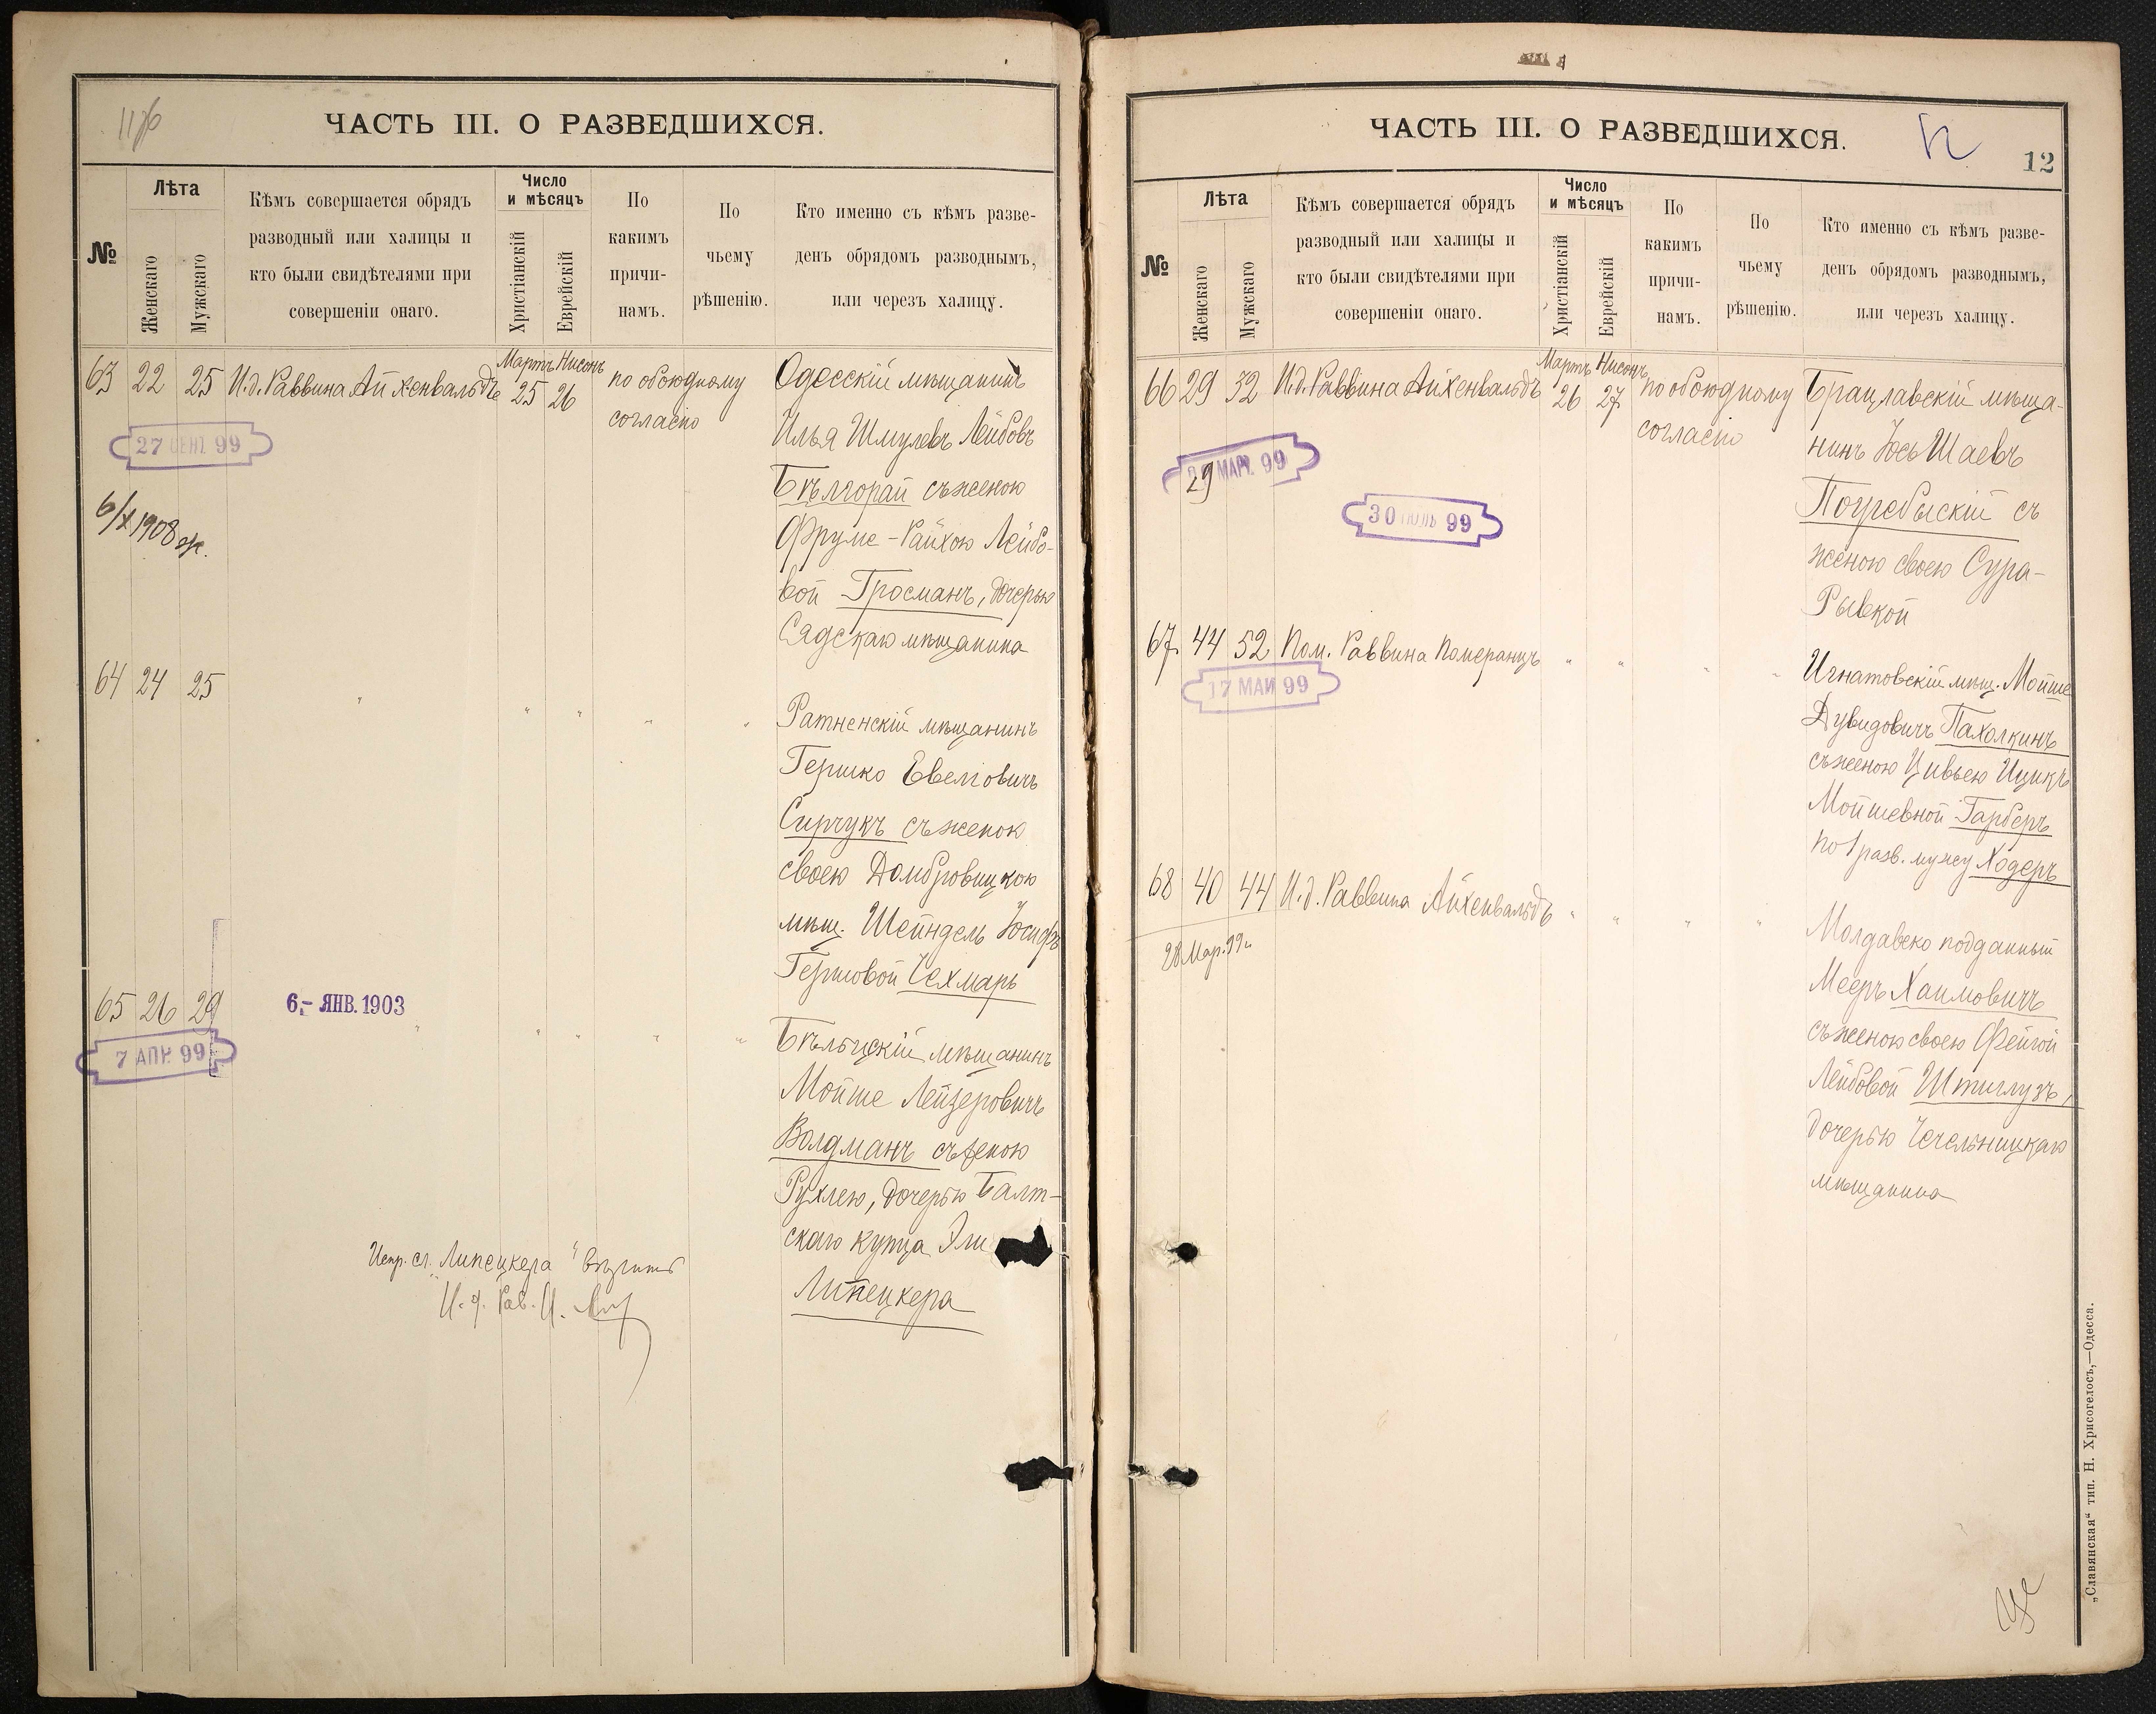 116
ЧАСТЬ III. О РАЗВЕДШИХСЯ.
№
Лѣта
Женскаго
Мужскаго
Кѣмъ совершается обрядъ
разводный или халицы и
кто были свидѣтелями при
совершеніи онаго.
Число
и мѣсяцъ
Христіанскій
Еврейскій
По
какимъ
причи-
намъ.
По
чьему
рѣшенію.
Кто именно съ кѣмъ разве-
денъ обрядомъ разводнымъ,
или черезъ халицу.
63 22 25 И.д. Раввина Айхенвальдъ Мартъ 25 Нисонъ 26 по обоюдному
согласію
Одесскій мѣщанинъ
Илья Шмулевъ Лейбовъ
Бѣлгорай съ женою
Фруме-Райхою Лейбо-
вой Гросманъ, дочерью
мѣщанина
27 СЕНТ. 99
6/X 1908
64 24 25 " " " " "
Ратненскій мѣщанинъ
Гершко
Сирчукъ съ женою
своею Домбровицкою
мѣщ. Шейндель Іосифъ
Гершовой Чехмарь
65 26 29 " " " " "
6- ЯНВ. 1903
7 АПР. 99
Бѣльцскій мѣщанинъ
Мойше Лейзеровичъ
Волдманъ съ женою
Рухлею, дочерью Балт-
скаго купца Эли
Липецкера
Испр. сл. "Липецкера"
И. д. Рав.
ЧАСТЬ III. О РАЗВЕДШИХСЯ.
12
№
Лѣта
Женскаго
Мужскаго
Кѣмъ совершается обрядъ
разводный или халицы и
кто были свидѣтелями при
совершеніи онаго.
Число
и мѣсяцъ
Христіанскій
Еврейскій
По
какимъ
причи-
намъ.
По
чьему
рѣшенію.
Кто именно съ кѣмъ разве-
денъ обрядомъ разводнымъ,
или черезъ халицу.
66 29 32 И.д. Раввина Айхенвальдъ Мартъ 26 Нисонъ 27 по обоюдному
согласію
Брацлавскій мѣща-
нинъ Іось Шаевъ
Погребыскій съ
женою своею Сура-
Рывкой
29 МАР. 99
30 ІЮЛЬ 99
67 44 52 Пом. Раввина Померанцъ " " " "
17 МАЙ 99
Игнатовскій мѣщ. Мойше
Дувидовичъ Пахолкинъ
съ женою Цивьею Ицикъ
Мойшевной Гарберъ
по 1 разв. мужу Ходеръ
68 40 44 И.д. Раввина Айхенвальдъ " " " "
28 Мар. 99
Молдавско подданный
Мееръ Хаимовичъ
съ женою своею Фейгой
Лейбовой Штиглузъ,
дочерью Чечельницкаго
мѣщанина
„Славянская“ тип. Н. Хрисогелосъ,—Одесса.